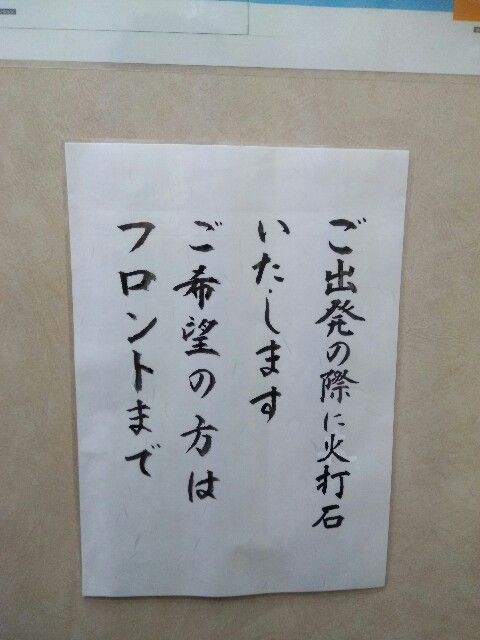 ご出発の際に火打石
いたします
ご希望の方は
フロントまで